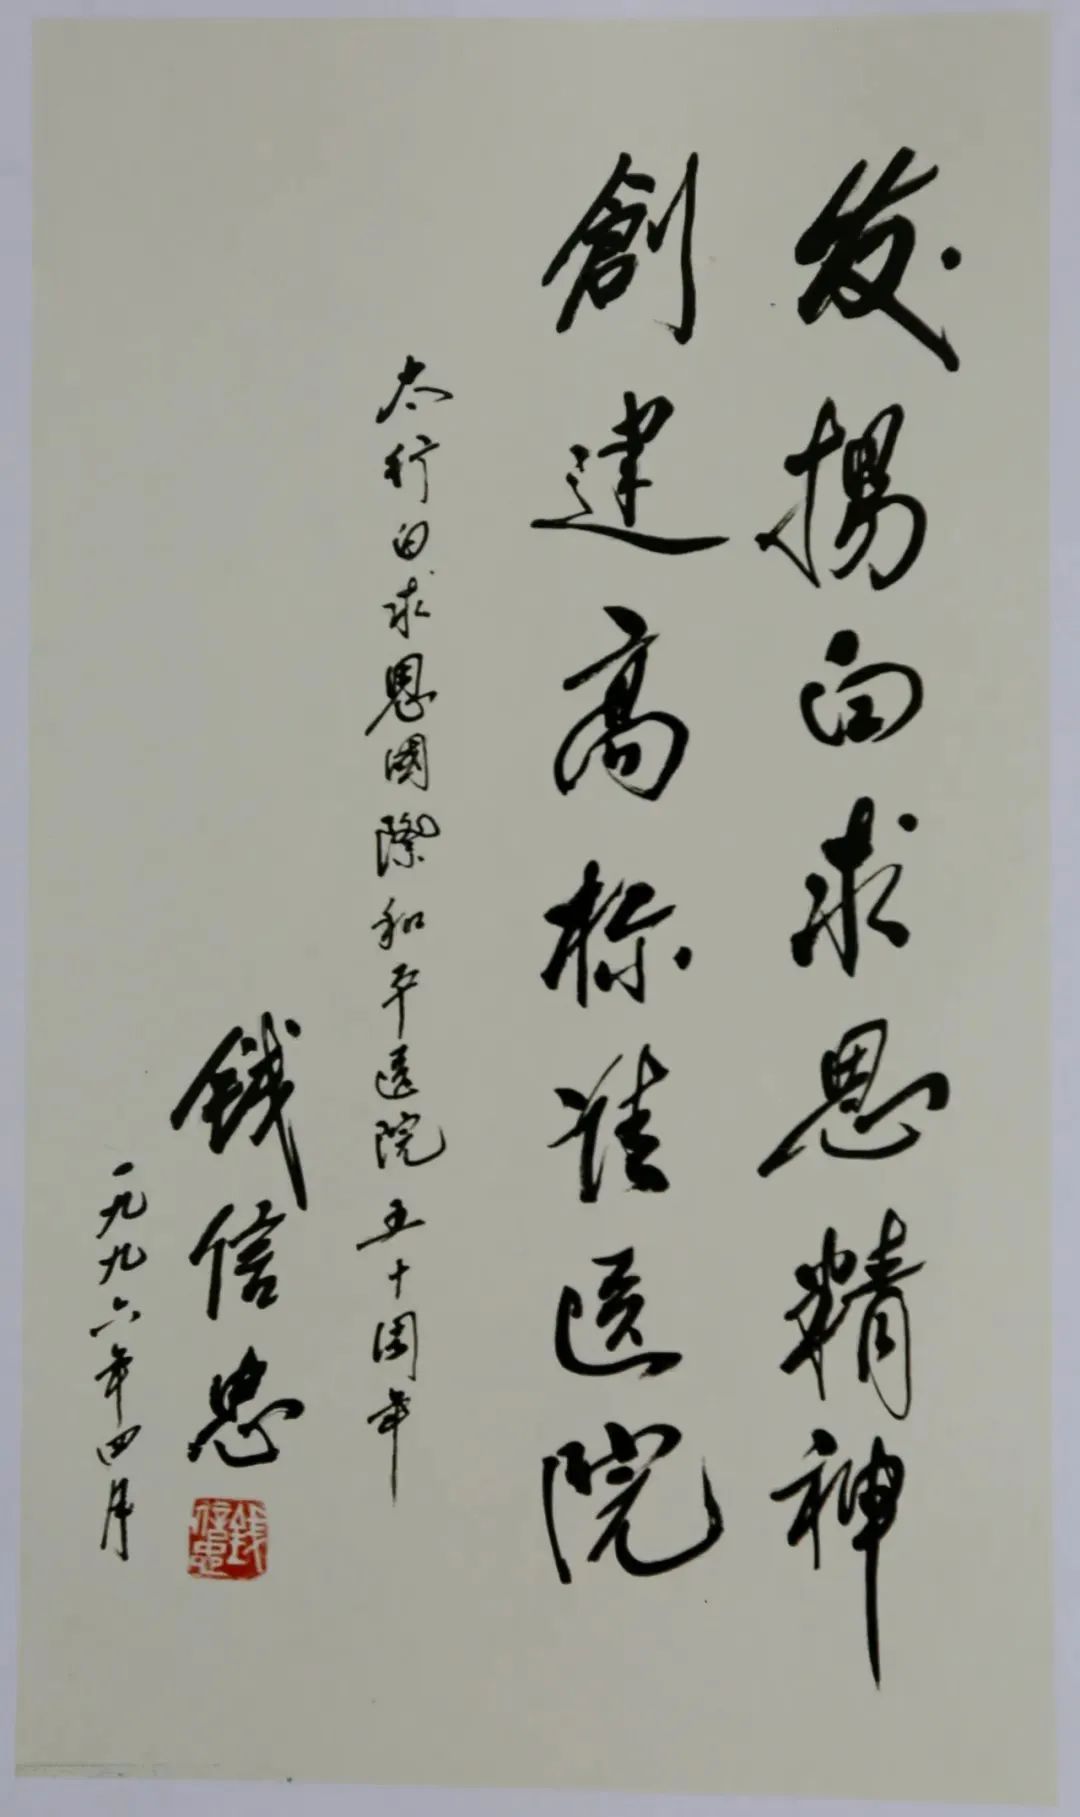 发揚白求恩精神
創建高标准医院
太行白求恩國際和平医院五十周年
錢信忠
一九九六年四月
錢信忠